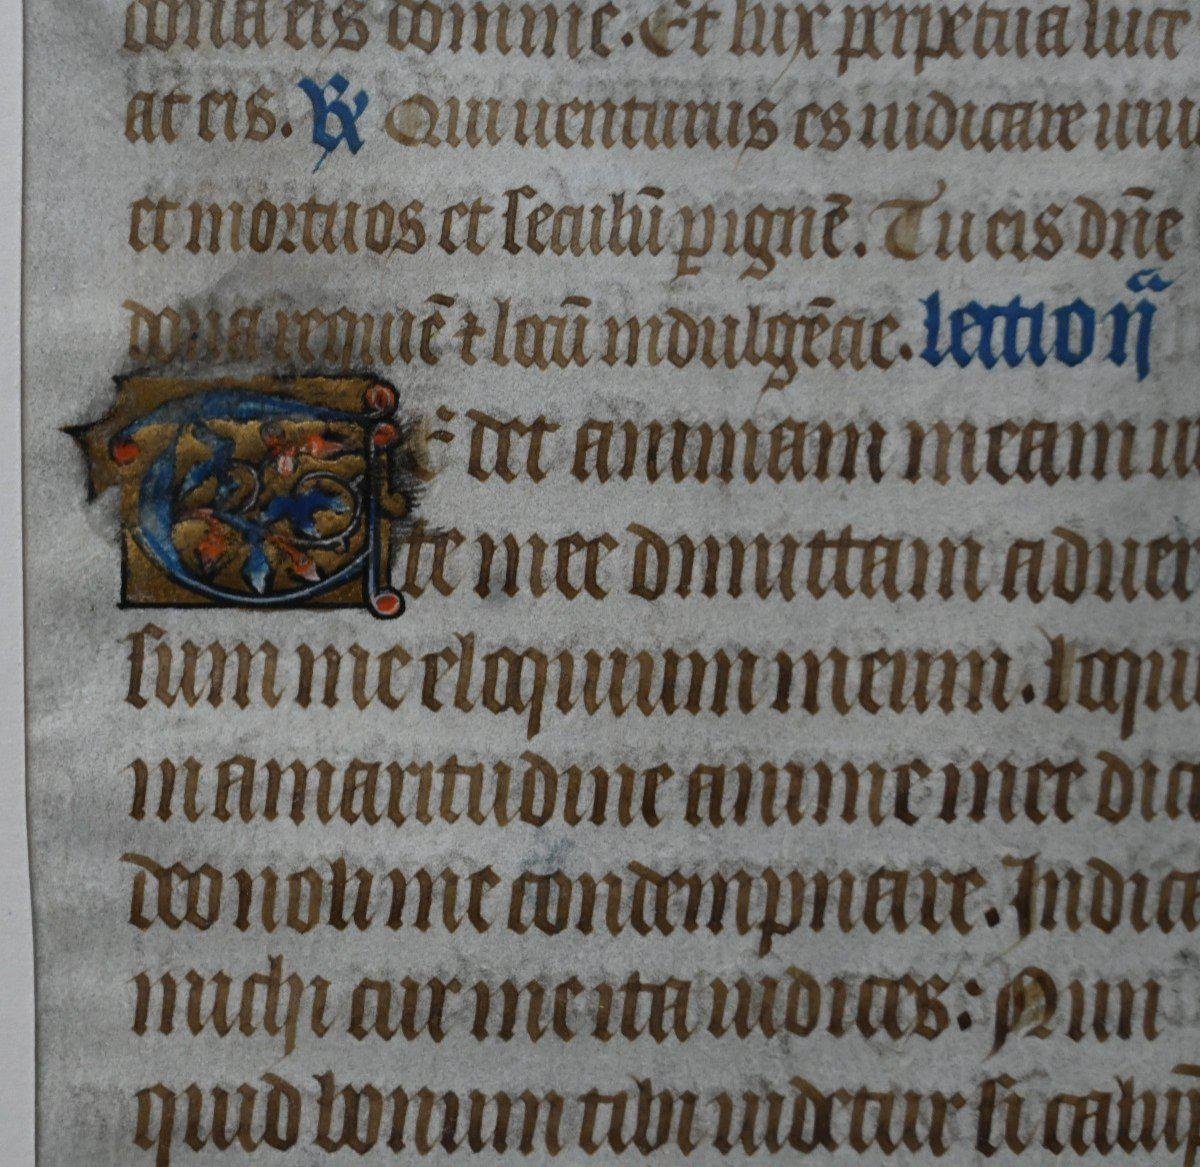 dona eis domine. Et lux perpetua luce
at eis. ℟ Qui uenturus es iudicare uiu
et mortuos et seculū p ignē. Tu eis dn̄e
dona requiē ⁊ locū indulgēcie. lectio ij
Tedet animam meam ui
te mee dimittam aduer
sum me eloquium meum. loqu
in amaritudine anime mee dica
deo noli me condempnare. Indica
michi cur me ita iudices: Nun
quid bonum tibi uidetur si calup̄